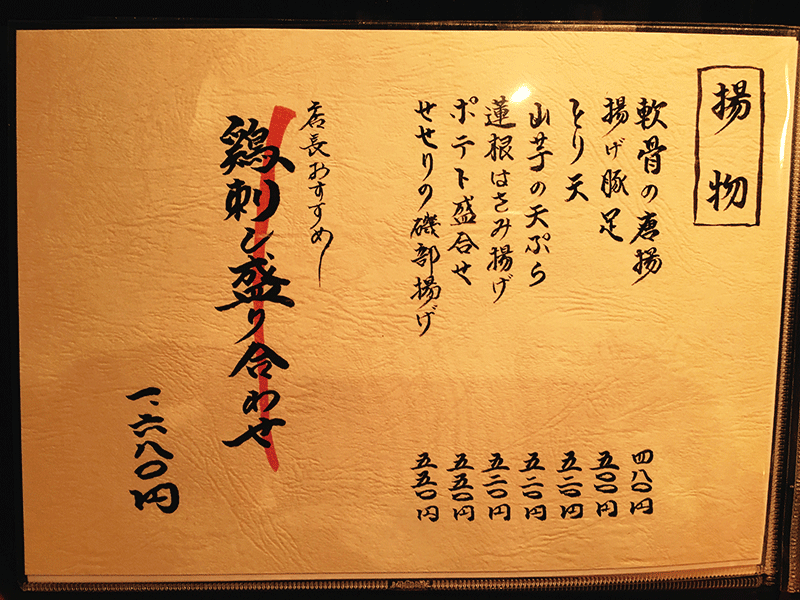 揚物
軟骨の唐揚 四八〇円
揚げ豚足 五〇〇円
とり天 五二〇円
山芋の天ぷら 五二〇円
蓮根はさみ揚げ 五二〇円
ポテト盛合せ 五五〇円
せせりの磯部揚げ 五五〇円
店長おすすめ!
鶏刺し盛り合わせ
一、六八〇円